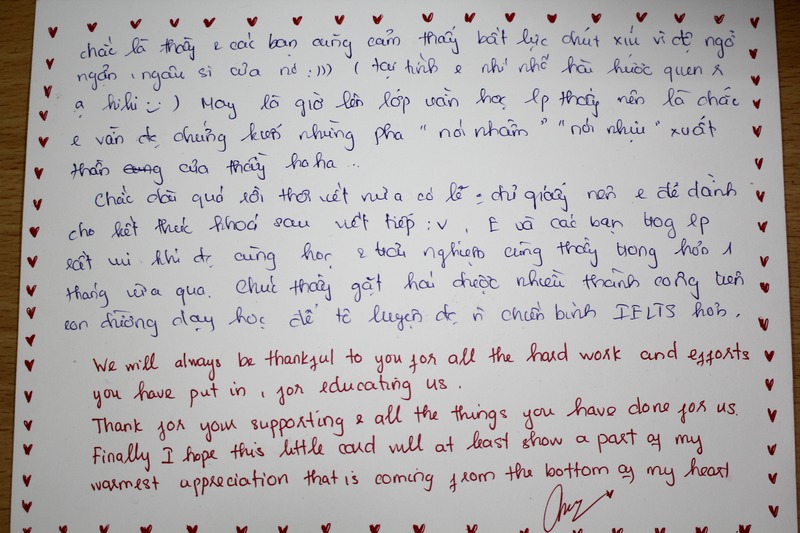 chắc là thầy & các bạn cũng cảm thấy bất lực chút xíu vì độ ngờ
ngạn, ngáu si của nó :))) ( tại tính e nhí nhố hài hước quen r
ạ hihi :) ) May là giờ lên lớp vẫn học lp thầy nên là chắc
e vẫn đc chứng kiến những pha "nói nhầm" "nói nhịu" xuất
thần của thầy haha...
Chắc dài quá rồi thôi viết nữa có lẽ = chỉ giấy nên e để dành
cho kết thúc khoá sau viết tiếp :v, E và các bạn trog lp
rất vui khi đc cùng học & trải nghiệm cùng thầy trong hơn 1
tháng vừa qua. Chúc thầy gặt hái được nhiều thành công trên
con đường dạy học để tôi luyện đc n chiến binh IELTS hơn.
We will always be thankful to you for all the hard work and efforts
you have put in, for educating us.
Thank for your supporting & all the things you have done for us.
Finally I hope this little card will at least show a part of my
warmest appreciation that is coming from the bottom of my heart